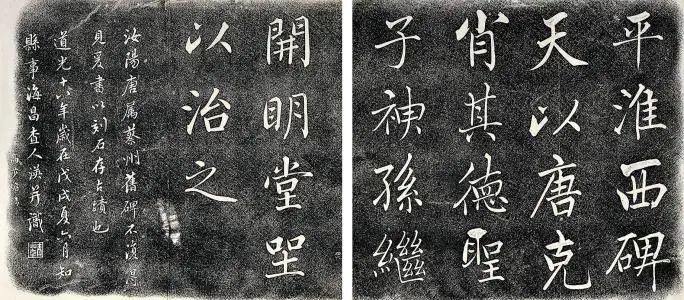 平淮西碑
天以唐克
肖其德聖
子神孫繼
開明堂坐
以治之
汝陽唐属蔡州舊碑不復得
見爰書以刻石存古蹟也
道光十八年歲在戊戌夏六月知
縣事海昌查人渶并識